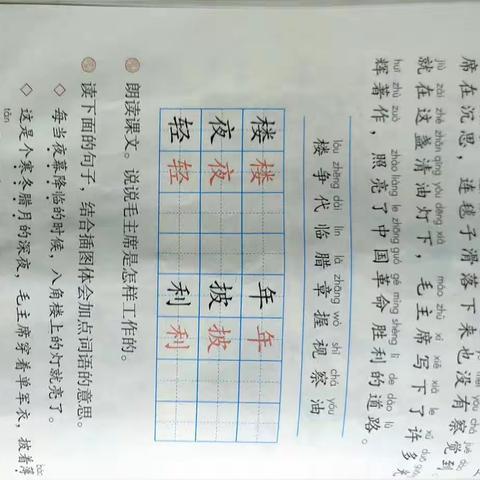 席在沉思，连毯子滑落下来也没有察觉到
jiù zài zhè zhǎn qīng yóu dēng xià máo zhǔ xí xiě xià le xǔ duō
就在这盏清油灯下，毛主席写下了许多
huī zhù zuò zhào liàng le zhōng guó gé mìng shèng lì de dào lù
辉著作，照亮了中国革命胜利的道路。
lóu zhēng dài lín là zhāng wò shì chá yóu
楼 争 代 临 腊 章 握 视 察 油
楼 楼 年 年
夜 夜 披 披
轻 轻 利 利
朗读课文。说说毛主席是怎样工作的。
读下面的句子，结合插图体会加点词语的意思。
◇ 每当夜幕降临的时候，八角楼上的灯就亮了。
báo
◇ 这是个寒冬腊月的深夜，毛主席穿着单军衣，披着薄
tǎn